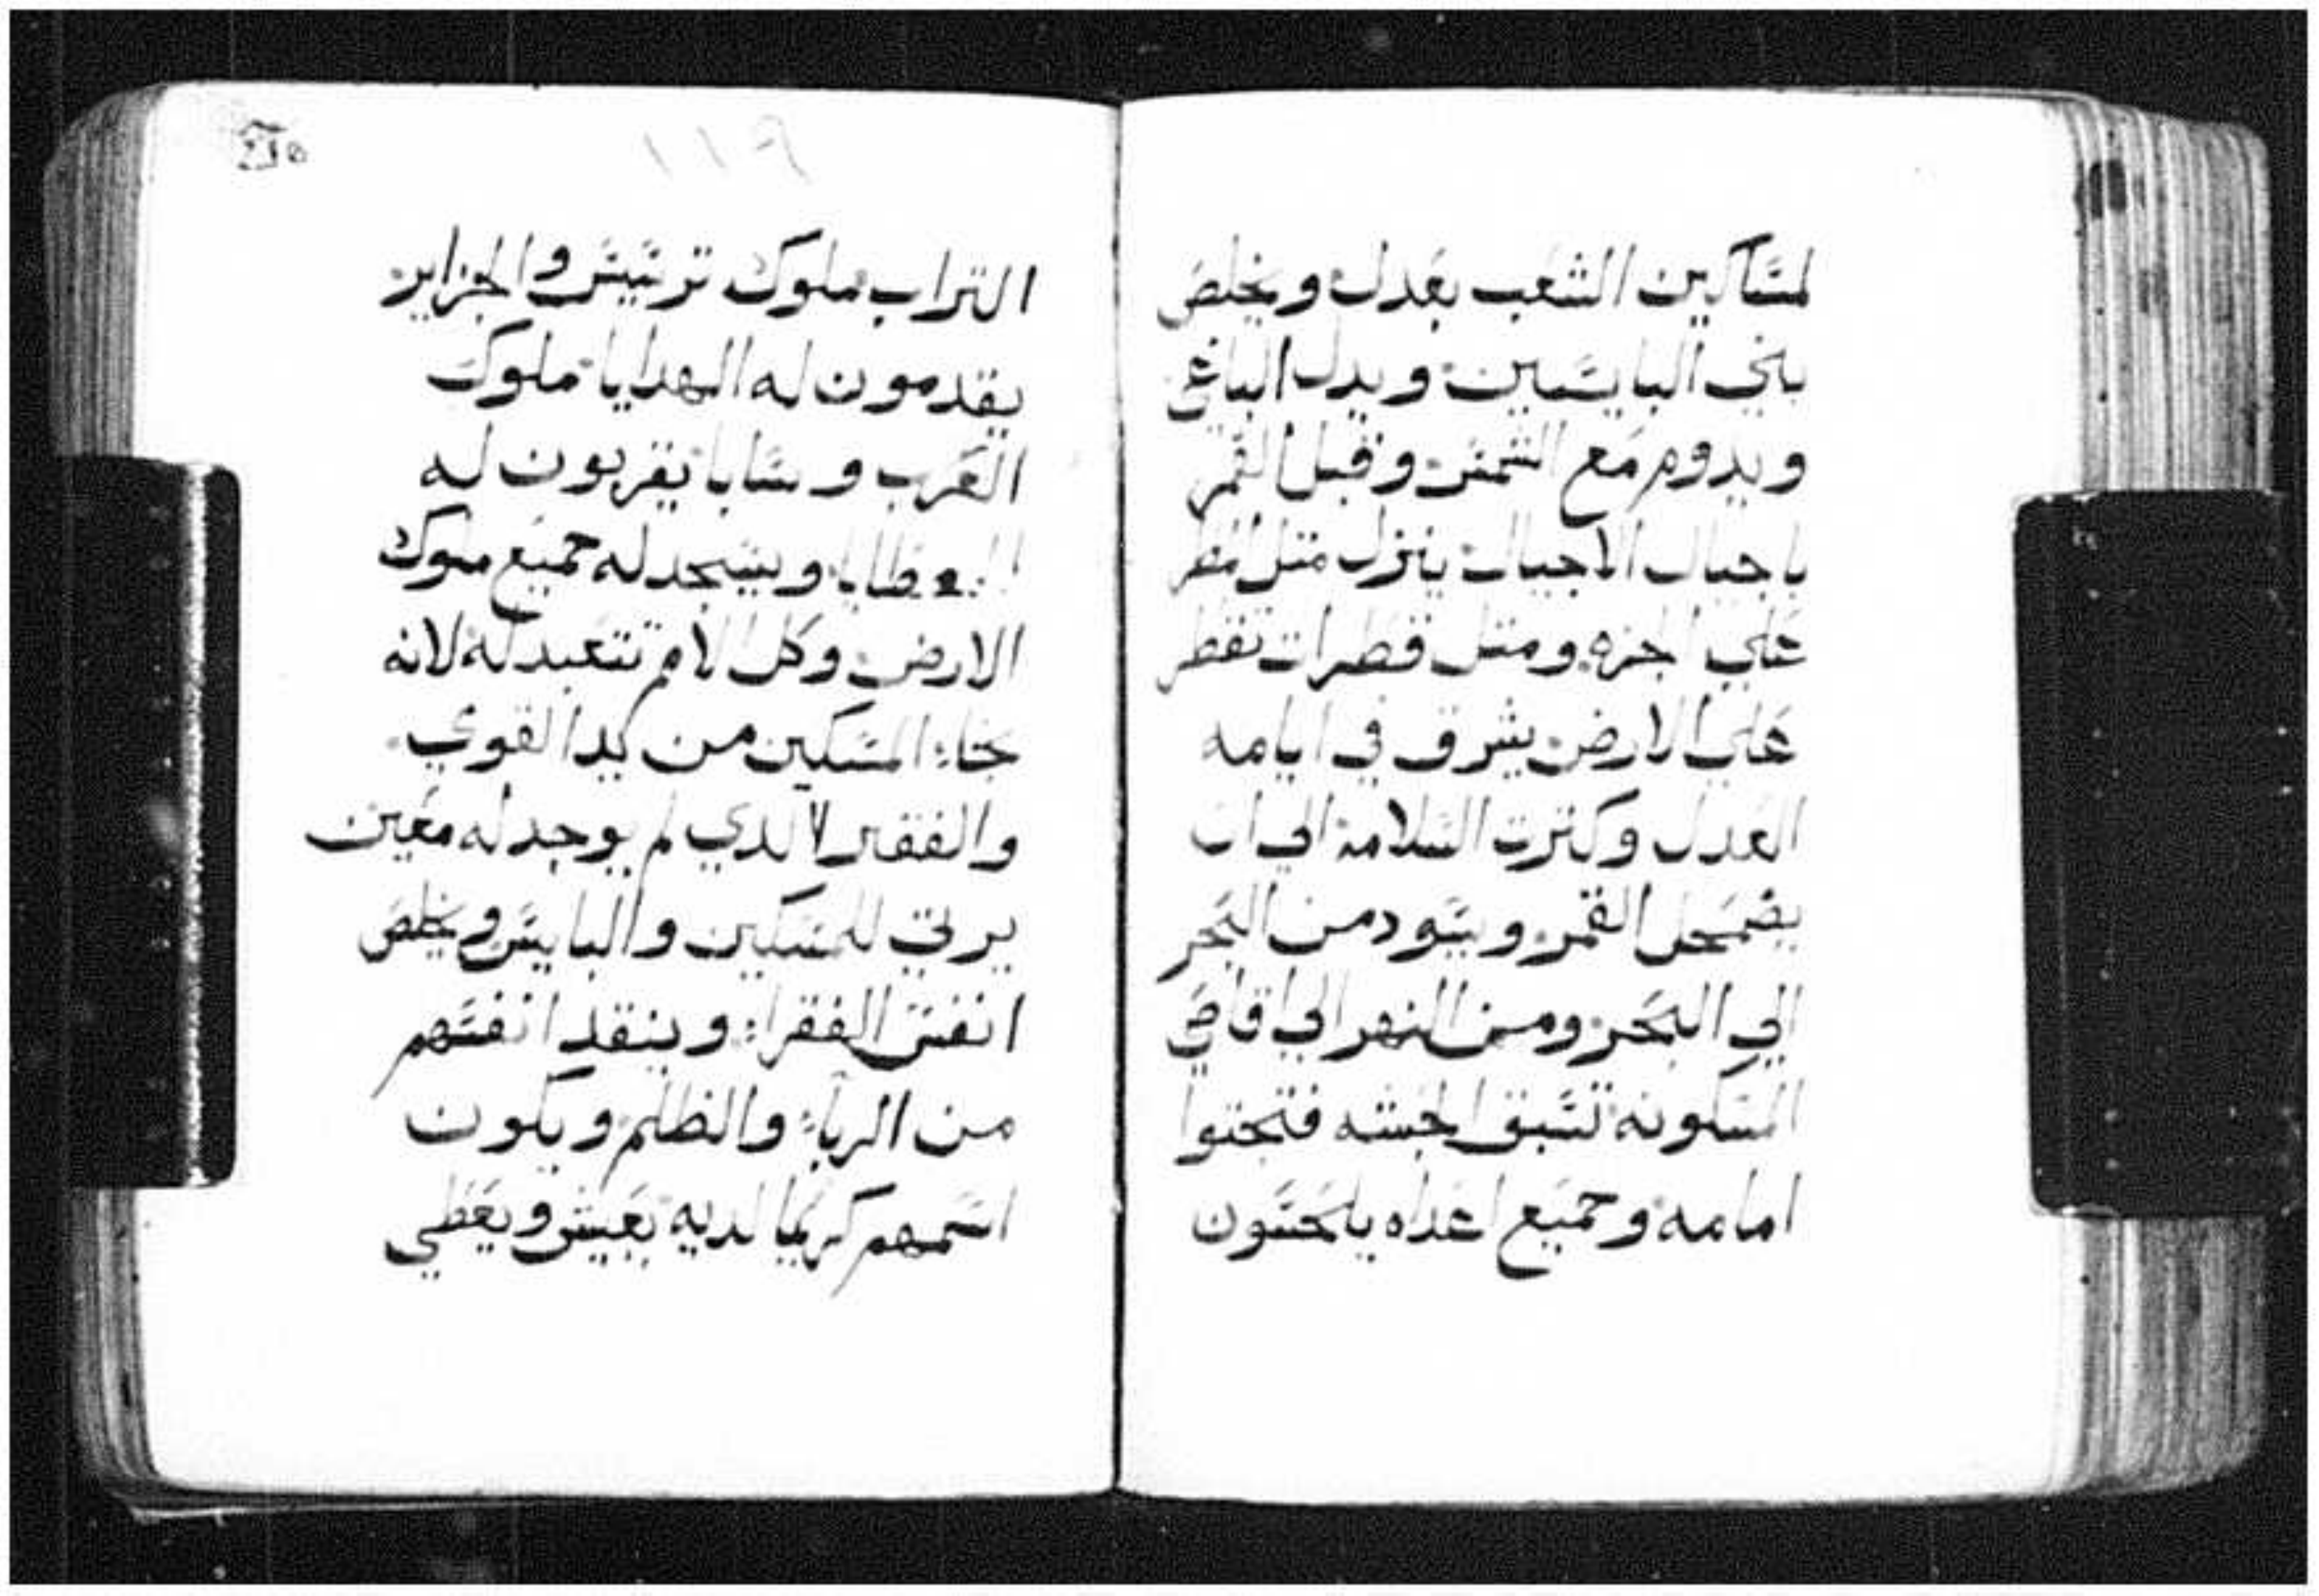 لمساكين الشعب بعدل ويخلص
بني البايسين ويدل الباغي
ويدوم مع الشمس وقبل القمر
ياجيال الاجيال ينزل متل المطر
علي الجزه ومتل قطرات تقطر
علي الارض يشرق في ايامه
العدل وكترت السلامه الي ان
يضمحل القمر ويسود من البحر
الي البحر ومن النهر الي اقاصي
المسكونه تسبق الحبشه فتجتوا
امامه وجميع اعداه يلحسون
١١٩
التراب ملوك ترسيس والجزاير
يقدمون له الهدايا ملوك
العرب وسابا يقربون له
العطايا ويسجد له جميع ملوك
الارض وكل الامم تتعبد له لانه
نجاء المسكين من يد القوي
والفقير الدي لم يوجد له معين
يرتي للمسكين والبايس ويخلص
انفس الفقراء وينقد انفسهم
من الرباء والظلم ويكون
اسمهم كريما لديه يعيش ويعطي